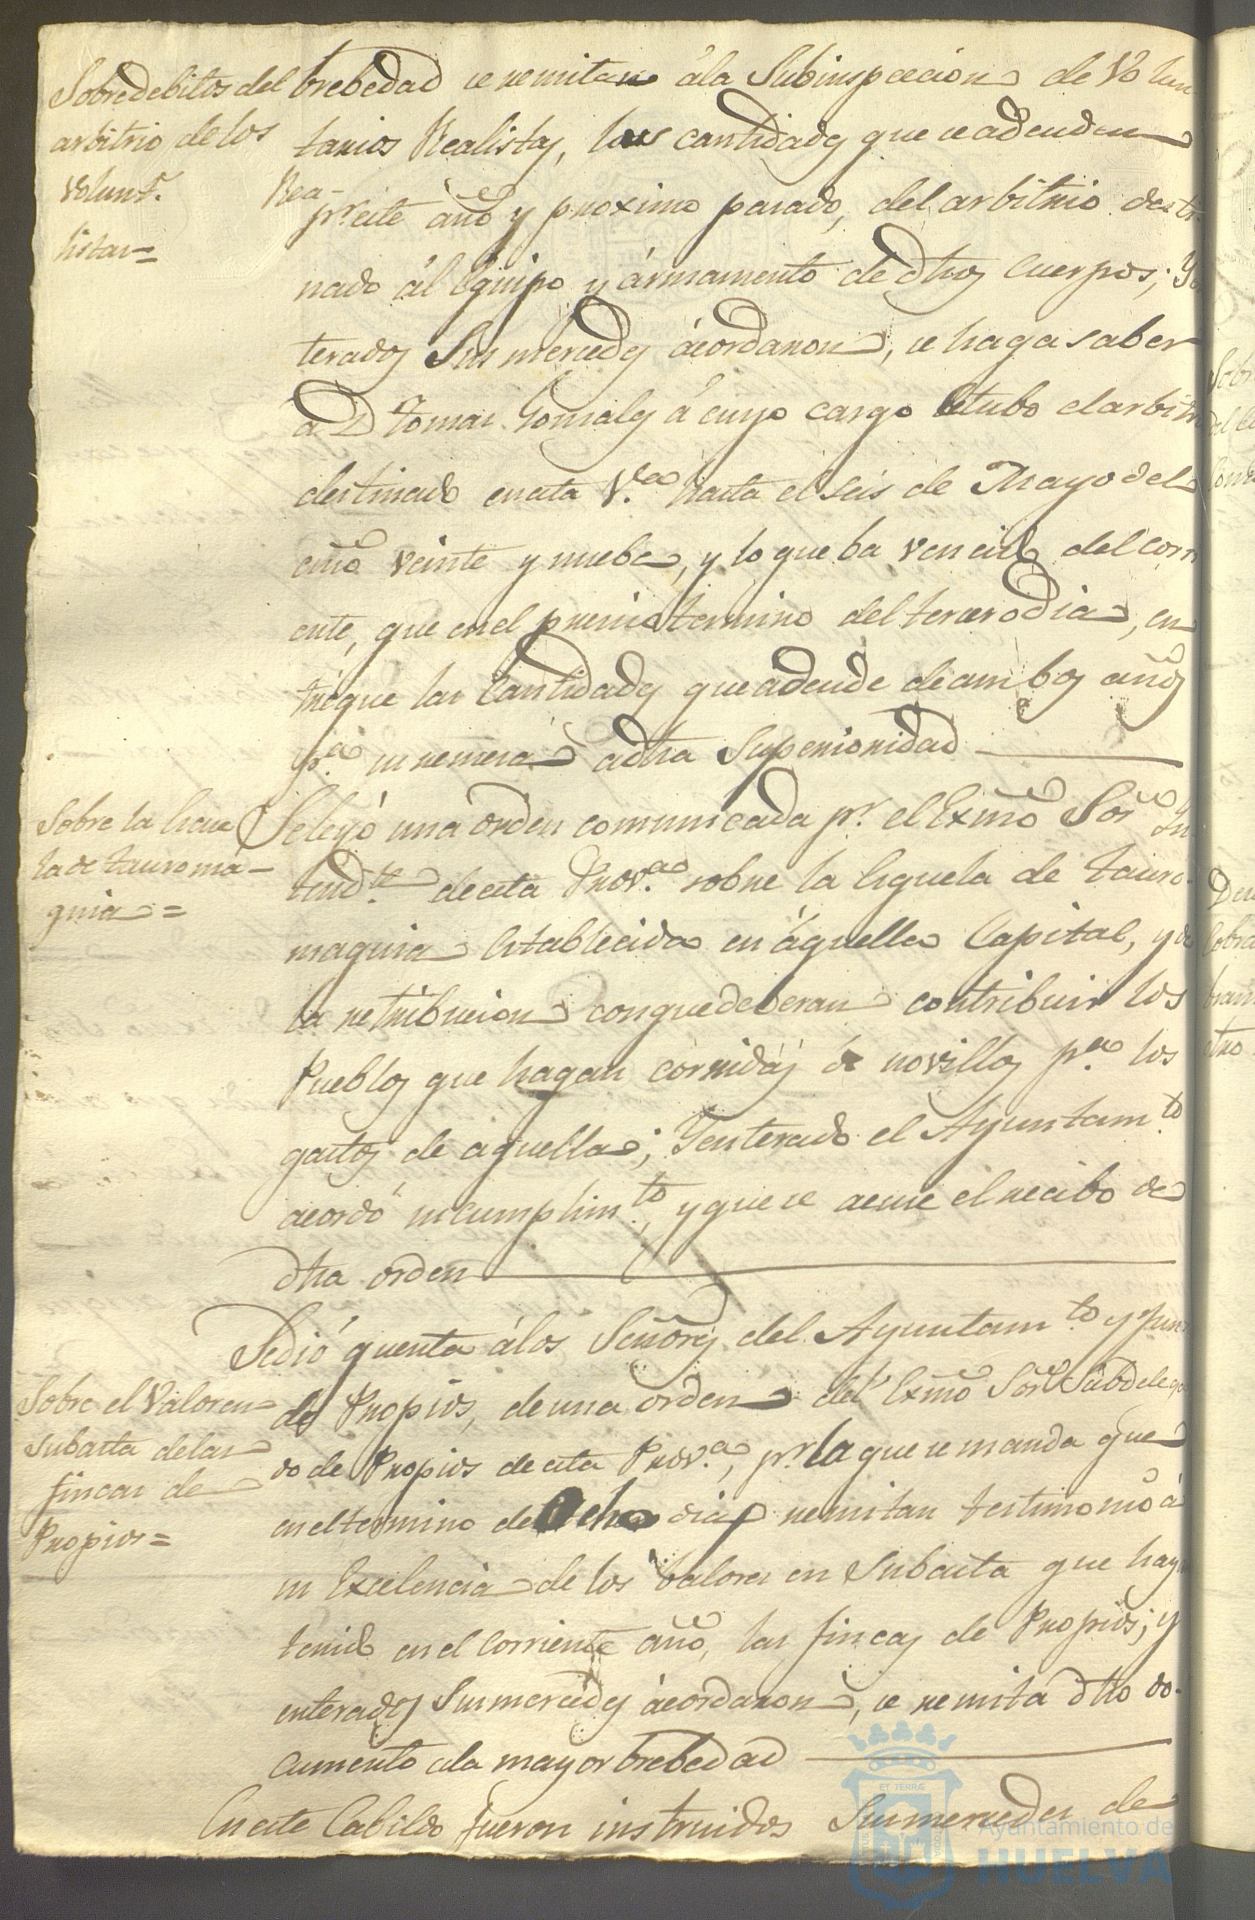 Sobre debitos del
arbitrio de los
Volunt.s Rea-
listas =
brebedad se remitan á la Subinspeccion de Volun
tarios Realistas, las cantidades que se adeuden
pr. este año y proximo pasado, del arbitrio desti
nado ál Equipo y ármamento de dhos Cuerpos; Y
terados Sus mercedes ácordaron, se haga saber
a D Tomas Gonsales á cuyo cargo estubo el arbitrio
destinado en esta V.a hasta el seis de Mayo del
año veinte y nuebe, y lo que ha vencido del corri
ente, que en el preciso termino del tercero dia, en
tregue las Cantidades que adeude de ambos años
p.a su remesa a dha Superioridad
Sobre la Escue
la de tauroma-
quia =
Se leyó una orden comunicada pr. el Exmo Sor In
tend.te de esta Prov.a sobre la Esquela de tauro-
maquia establecida en áquella Capital, y de
la retribucion con que deberan contribuir los
Pueblos que hagan corridas de novillos p.a los
gastos de aquella; Y enterado el Ayuntam.to
acordó su cumplim.to, y que se acuse el recibo de
dha orden
Sobre el Valor en
subasta de las
fincas de
Propios =
Se dió quenta álos Señores del Ayuntam.to y Junta
de Propios, de una orden del Exmo Sor Subdelega
do de Propios de esta Prov.a, pr. la que se manda que
en el termino de Ocho dias remitan testimonio á
su Excelencia de los valores en Subasta que hay
tenido en el corriente año, las fincas de Propios; y
enterados Sus mercedes ácordaron, se remita dho do-
cumento a la mayor brebedad
En este Cabildo fueron instruidos Sus mercedes de
Ayuntamiento de
HUELVA